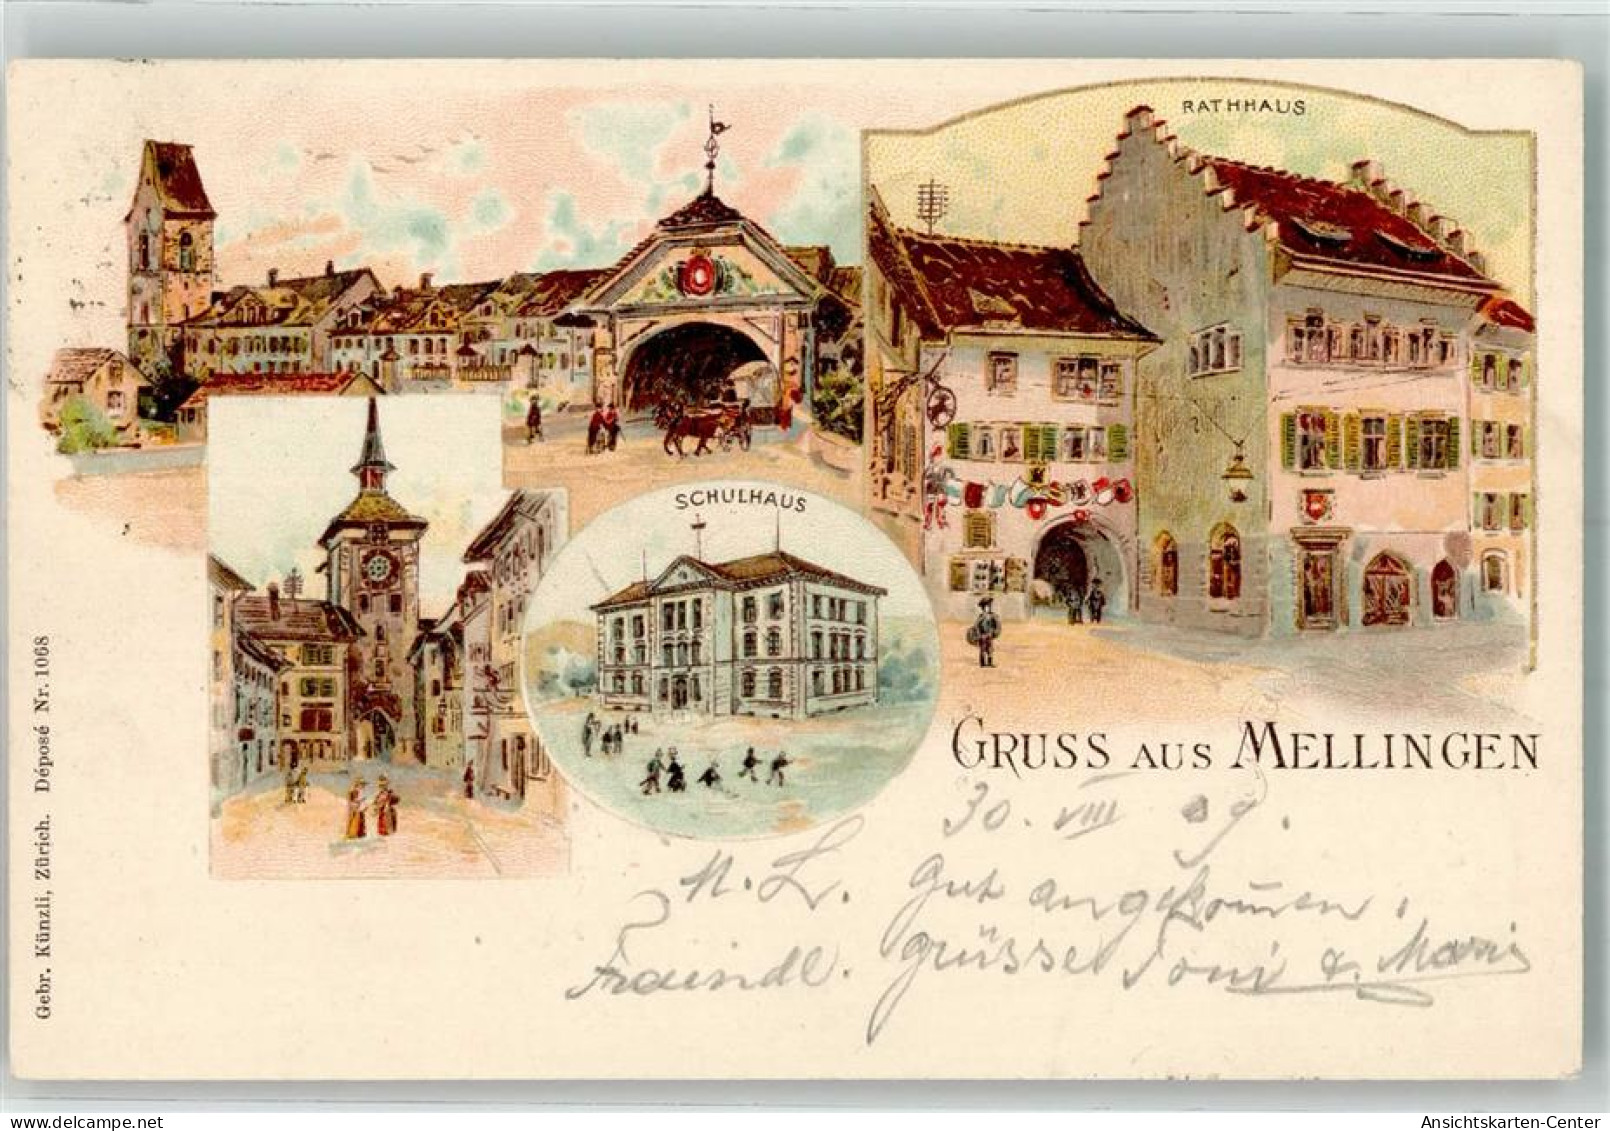 RATHHAUS
SCHULHAUS
GRUSS AUS MELLINGEN
30. VIII 09.
M. L. Gut angekom̅en.
Freundl. Grüsse Toni & Marie
Gebr. Künzli, Zürich. Déposé Nr. 1068
Ansichtskarten-Center